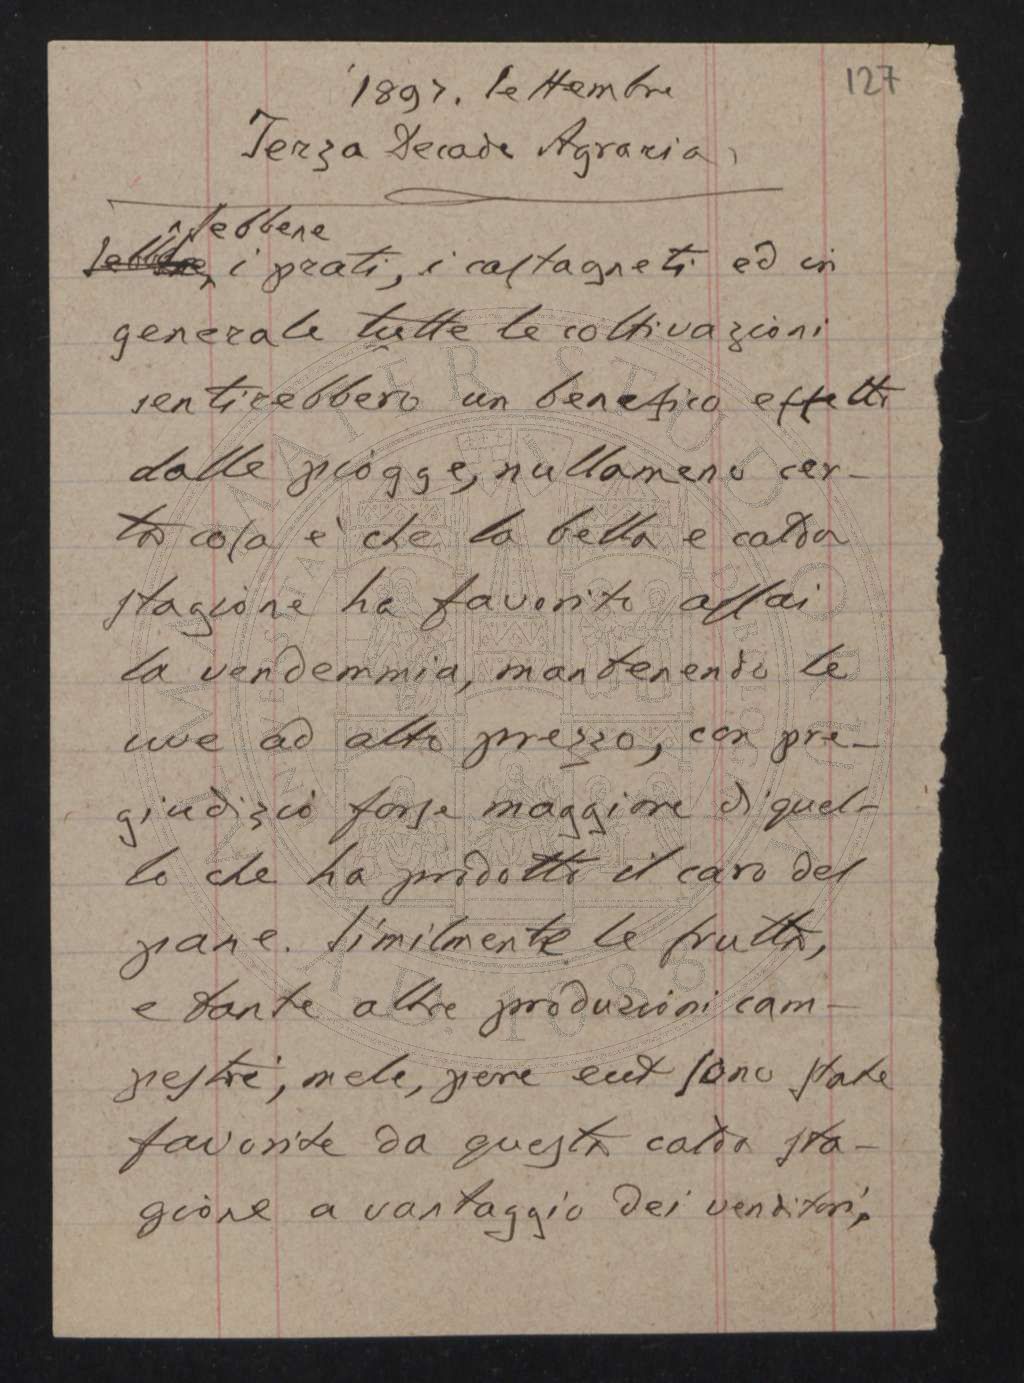 127
1897. Settembre
Terza Decade Agraria
Sebbene
i prati, i castagneti ed in
generale tutte le coltivazioni
sentirebbero un benefico effetto
dalle piogge, nullameno cer-
ta cosa è che la bella e calda
stagione ha favorito assai
la vendemmia, mantenendo le
uve ad alto prezzo, con pre-
giudizio forse maggiore di quel-
lo che ha prodotto il caro del
pane. Similmente le frutta,
e tante altre produzioni cam-
pestri, mele, pere sono state
favorite da questa calda sta-
gione a vantaggio dei venditori,
ALMA MATER STUDIORUM
A.D. 1088